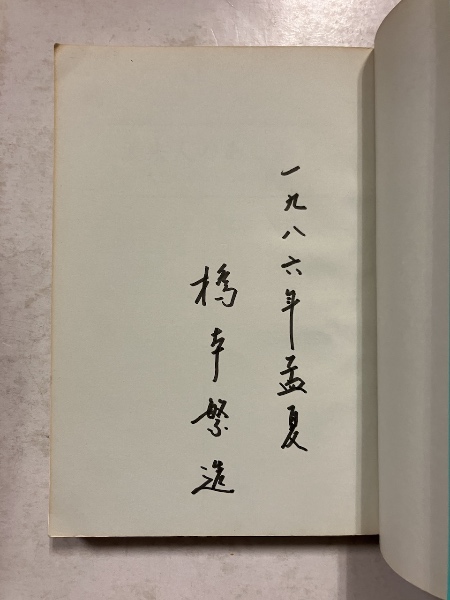 一九八六年孟夏
橋本繁造